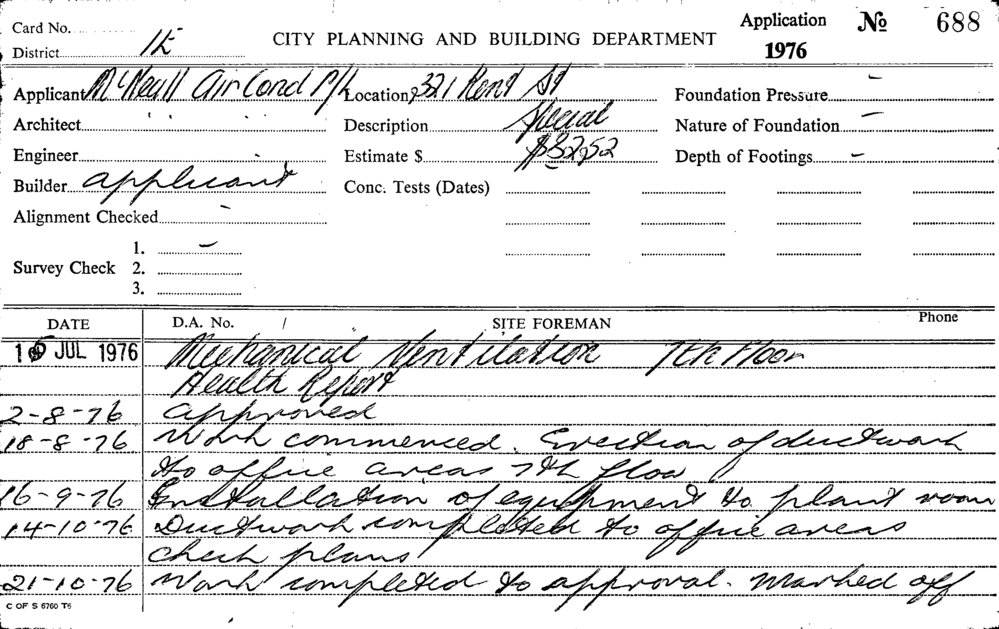 Card No. Application No 688
District 1E CITY PLANNING AND BUILDING DEPARTMENT 1976
Applicant McNeill Air Cond P/L Location 321 Kent St Foundation Pressure –
Architect Description Special Nature of Foundation –
Engineer Estimate $ $3252 Depth of Footings –
Builder applicant Conc. Tests (Dates)
Alignment Checked –
1. –
Survey Check 2.
3.
DATE D.A. No. / SITE FOREMAN Phone
JUL 1976 Mechanical Ventilation 7th Floor
Health Report
2-8-76 approved
18-8-76 Work commenced. Erection of ductwork
to office areas 7th floor
16-9-76 Installation of equipment to plant room
14-10-76 Ductwork completed to office areas
check plans
21-10-76 Work completed to approval. Marked off
C OF S 6760 T6